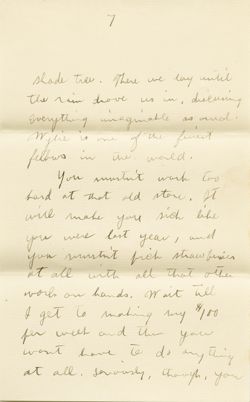 7
shade tree. There we lay until
the rain drove us in, discussing
everything imaginable as usual.
Wylie is one of the finest
fellows in the world.
You mustn't work too
hard at that old store. It
will make you sick like
you were last year, and
you mustn't pick strawberries
at all with all that other
work on hands. Wait till
I get to making my $100
per week and then you
wont have to do anything
at all. Seriously, though, you